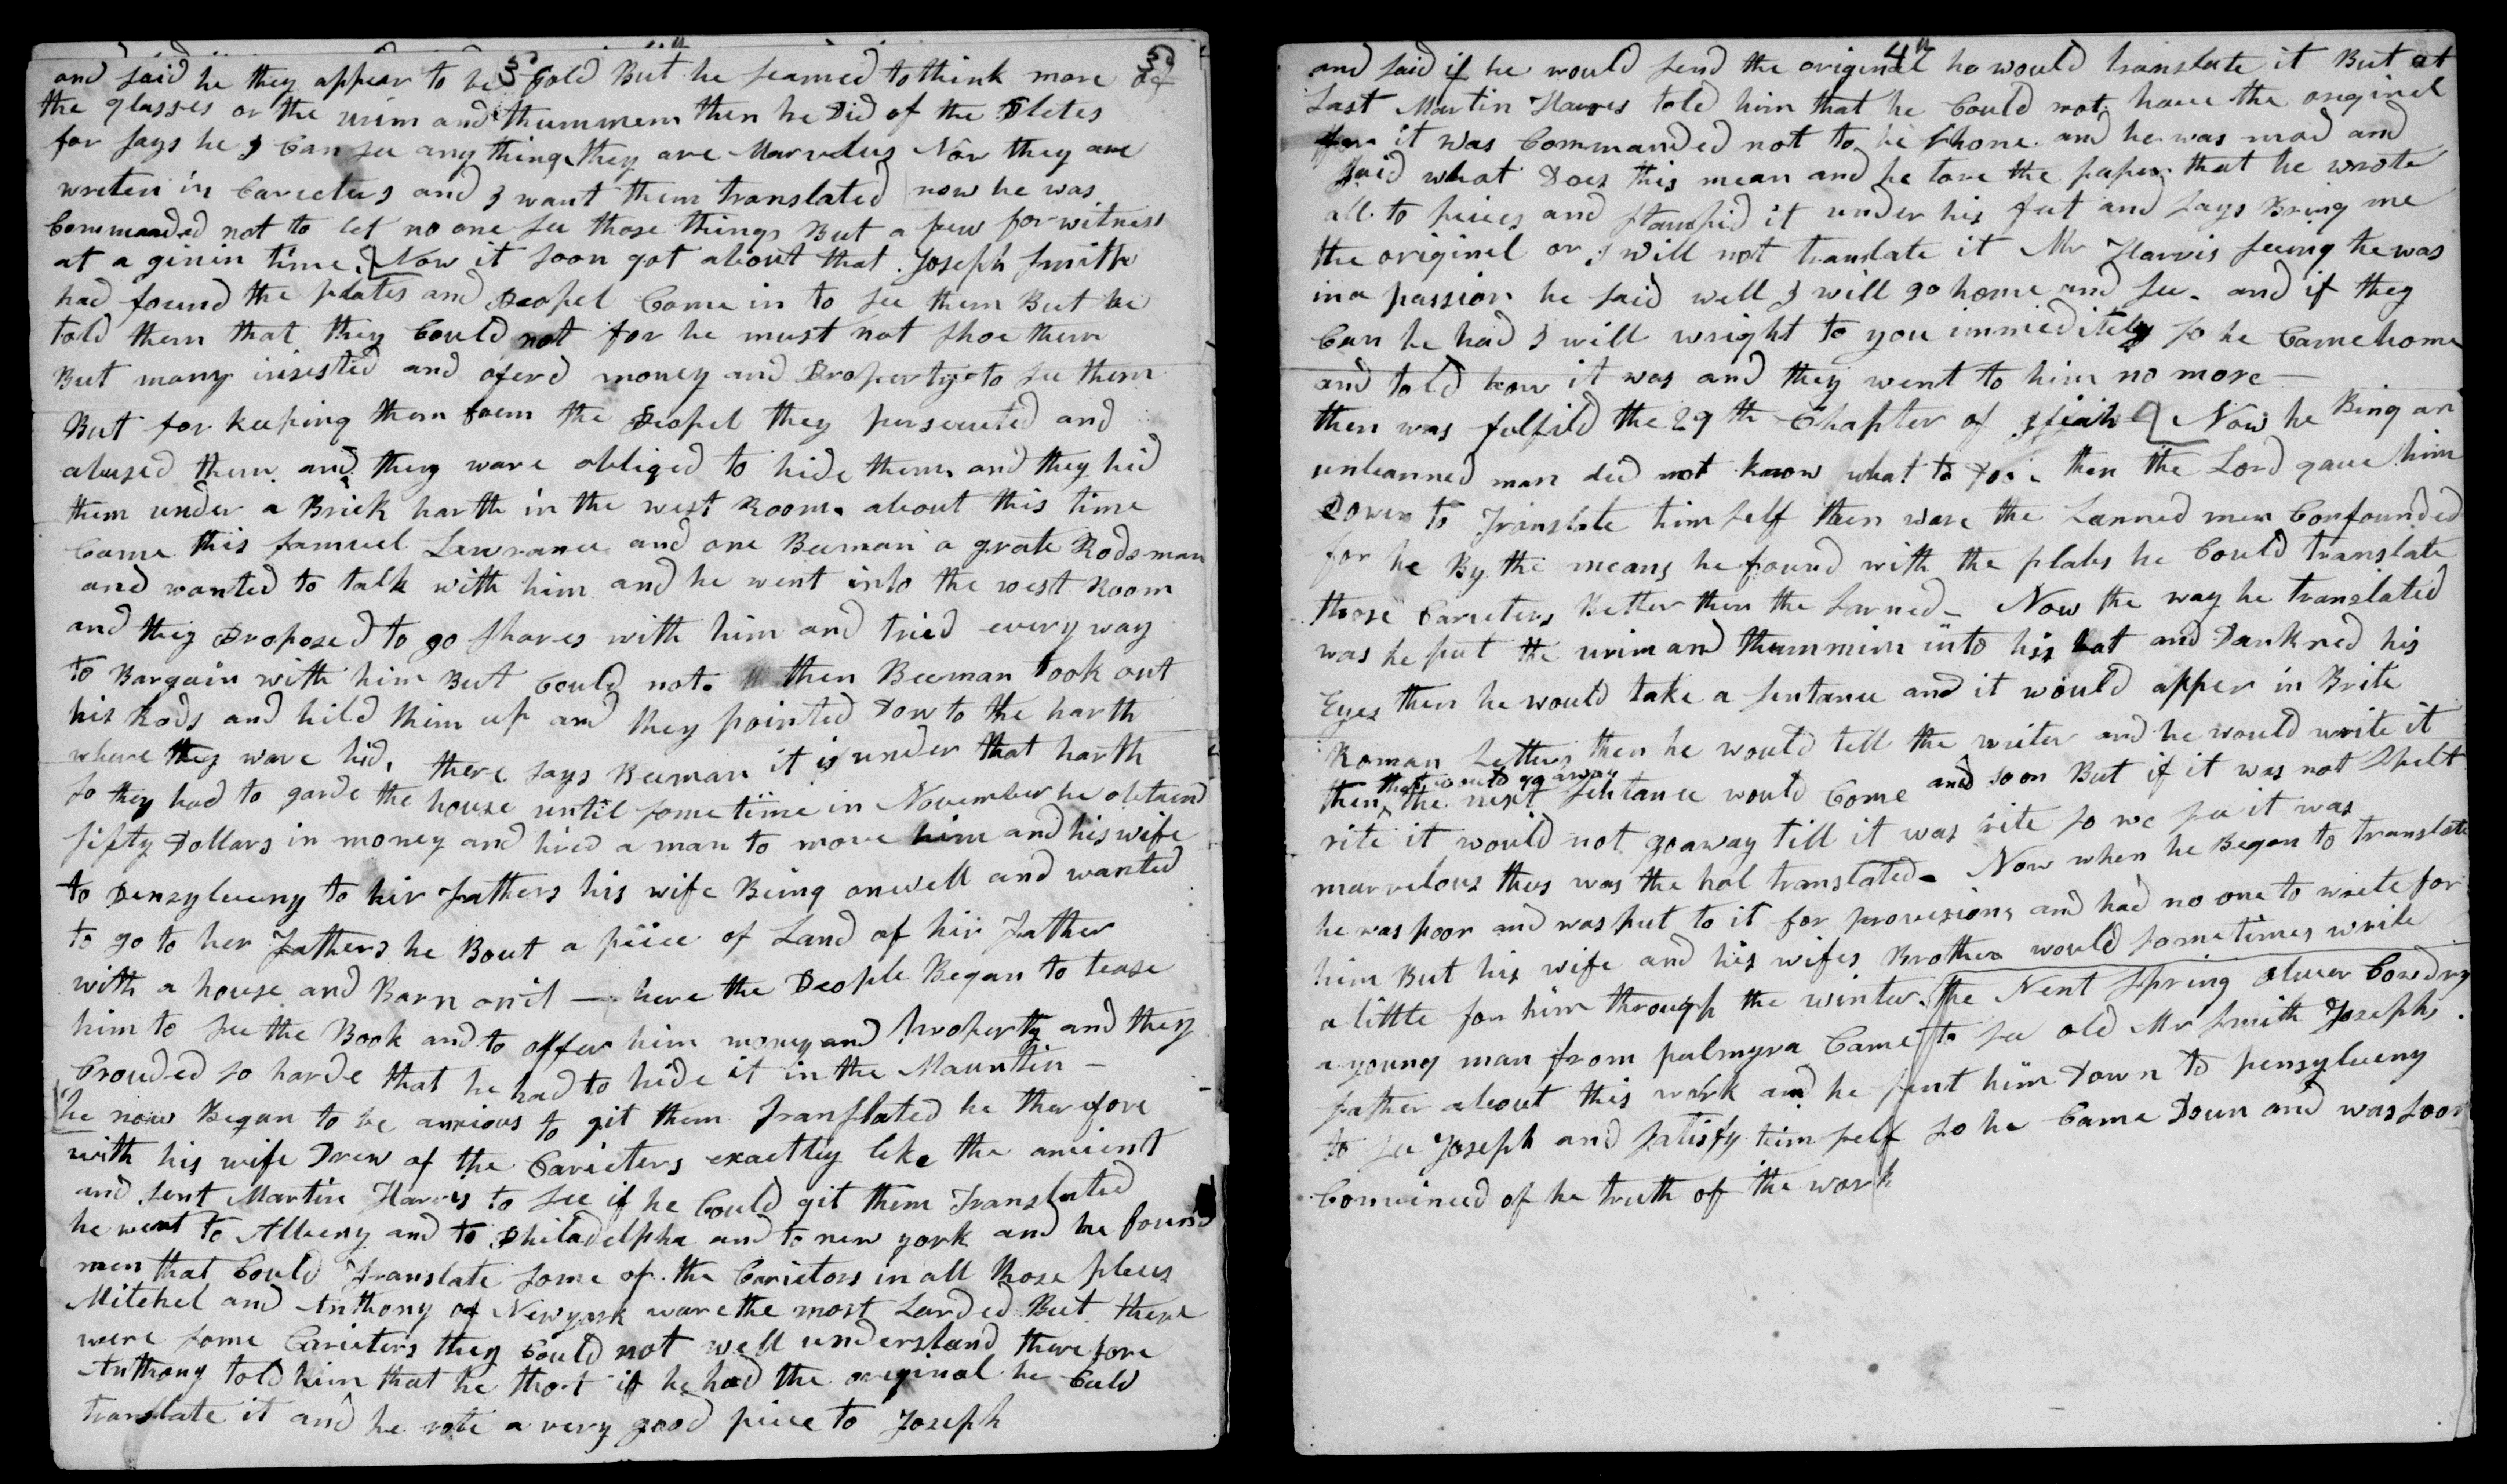 3d
and said he they appear to be Gold But he seamed to think more of
the glasses or the urim and thummem then he Did of the Plates
for says he I Can see any thing they are Marvelus Now they are
writen in Caracters and I want them translated now he was
Commanded not to let no one see those things But a few for witness
at a givin time. Now it soon got about that Joseph Smith
had found the plates and Peopel Came in to see them But he
told them that they Could not for he must not shoe them
But many insisted and oferd money and Property to see them
But for keeping them from the Peopel they persecuted and
abused them and they ware obliged to hide them and they hid
them under a Brick harth in the west Room. about this time
Came this Samuel Lawrance and one Beeman a grate Rodsman
and wanted to talk with him and he went into the west Room
and they Proposed to go shares with him and tried every way
to Bargain with him But Could not. then Beeman took out
his Rods and hild them up and they pointed Dow to the harth
where they ware hid, there says Beeman it is under that harth
so they had to garde the house until some time in November he obtaind
fifty Dollars in money and hired a man to move him and his wife
to Pensylveny to hir Fathers his wife Being onwell and wanted
to go to her Fathers he Bout a piece of Land of hir Father
with a house and Barn on it — here the People Began to tease
him to see the Book and to offer him money and property and they
Crouded so harde that he had to hide it in the Mountin —
he now Began to be anxious to git them Translated he therefore
with his wife Drew of the Caricters exactley like the ancient
and sent Martin Harris to see if he Could git them Translated
he went to Albeny and to Philadelpha and to new york and he found
men that Could Translate some of the Carictors in all those places
Mitchel and Anthony of Newyork ware the most Larded But there
were some Caricters they Could not well understand therefore
Anthony told him that he thot if he had the original he Culd
translate it and he rote a very good piece to Joseph
4th
and said if he would send the original he would translate it But at
Last Martin Harris told him that he Could not have the original
for it was Commanded not to be shone and he was mad and
said what Does this mean and he tore the paper that he wrote
all to pieces and stampid it under his feet and says Bring me
the originel or I will not translate it Mr Harris seeing he was
in a passion he said well I will go home and see. and if they
Can be had I will wright to you immeditely so he Came home
and told how it was and they went to him no more —
then was fulfild the 29th Chapter of Isiah Now he Being an
unlearned man did not know what to Do. then the Lord gave him
Power to Translate himself then ware the Larned men Confounded
for he By the means he found with the plates he Could translate
those Caricters Better than the Larned. Now the way he translated
was he put the urim and thummim into his hat and Darkned his
Eyes then he would take a sentance and it would apper in Brite
Roman Letters then he would tell the writer and he would write it
that would go away
then the next sentance would Come and so on But if it was not Spelt
rite it would not go away till it was rite so we see it was
marvelous thus was the hol translated. Now when he Began to translate
he was poor and was put to it for provisions and had no one to write for
him But his wife and his wifes Brother would sometimes write
a little for him through the winter. The Next Spring Oliver Cowdry
a young man from palmyra Came to see old Mr Smith Josephs
father about this work and he sent him Down to pensylveny
to see Joseph and satisfy himself so he Came Down and was soon
Convinced of he truth of the work